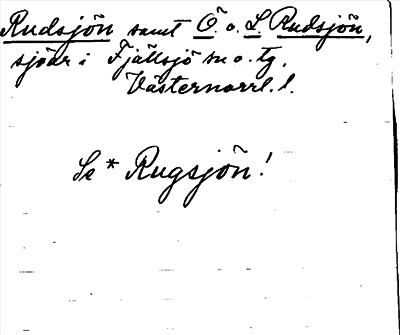 Rudsjön samt Ö. o. L Rudsjön,
sjöar i Fjällsjö sn o. tg.
Västernorrl. l.
Se * Rugsjön!